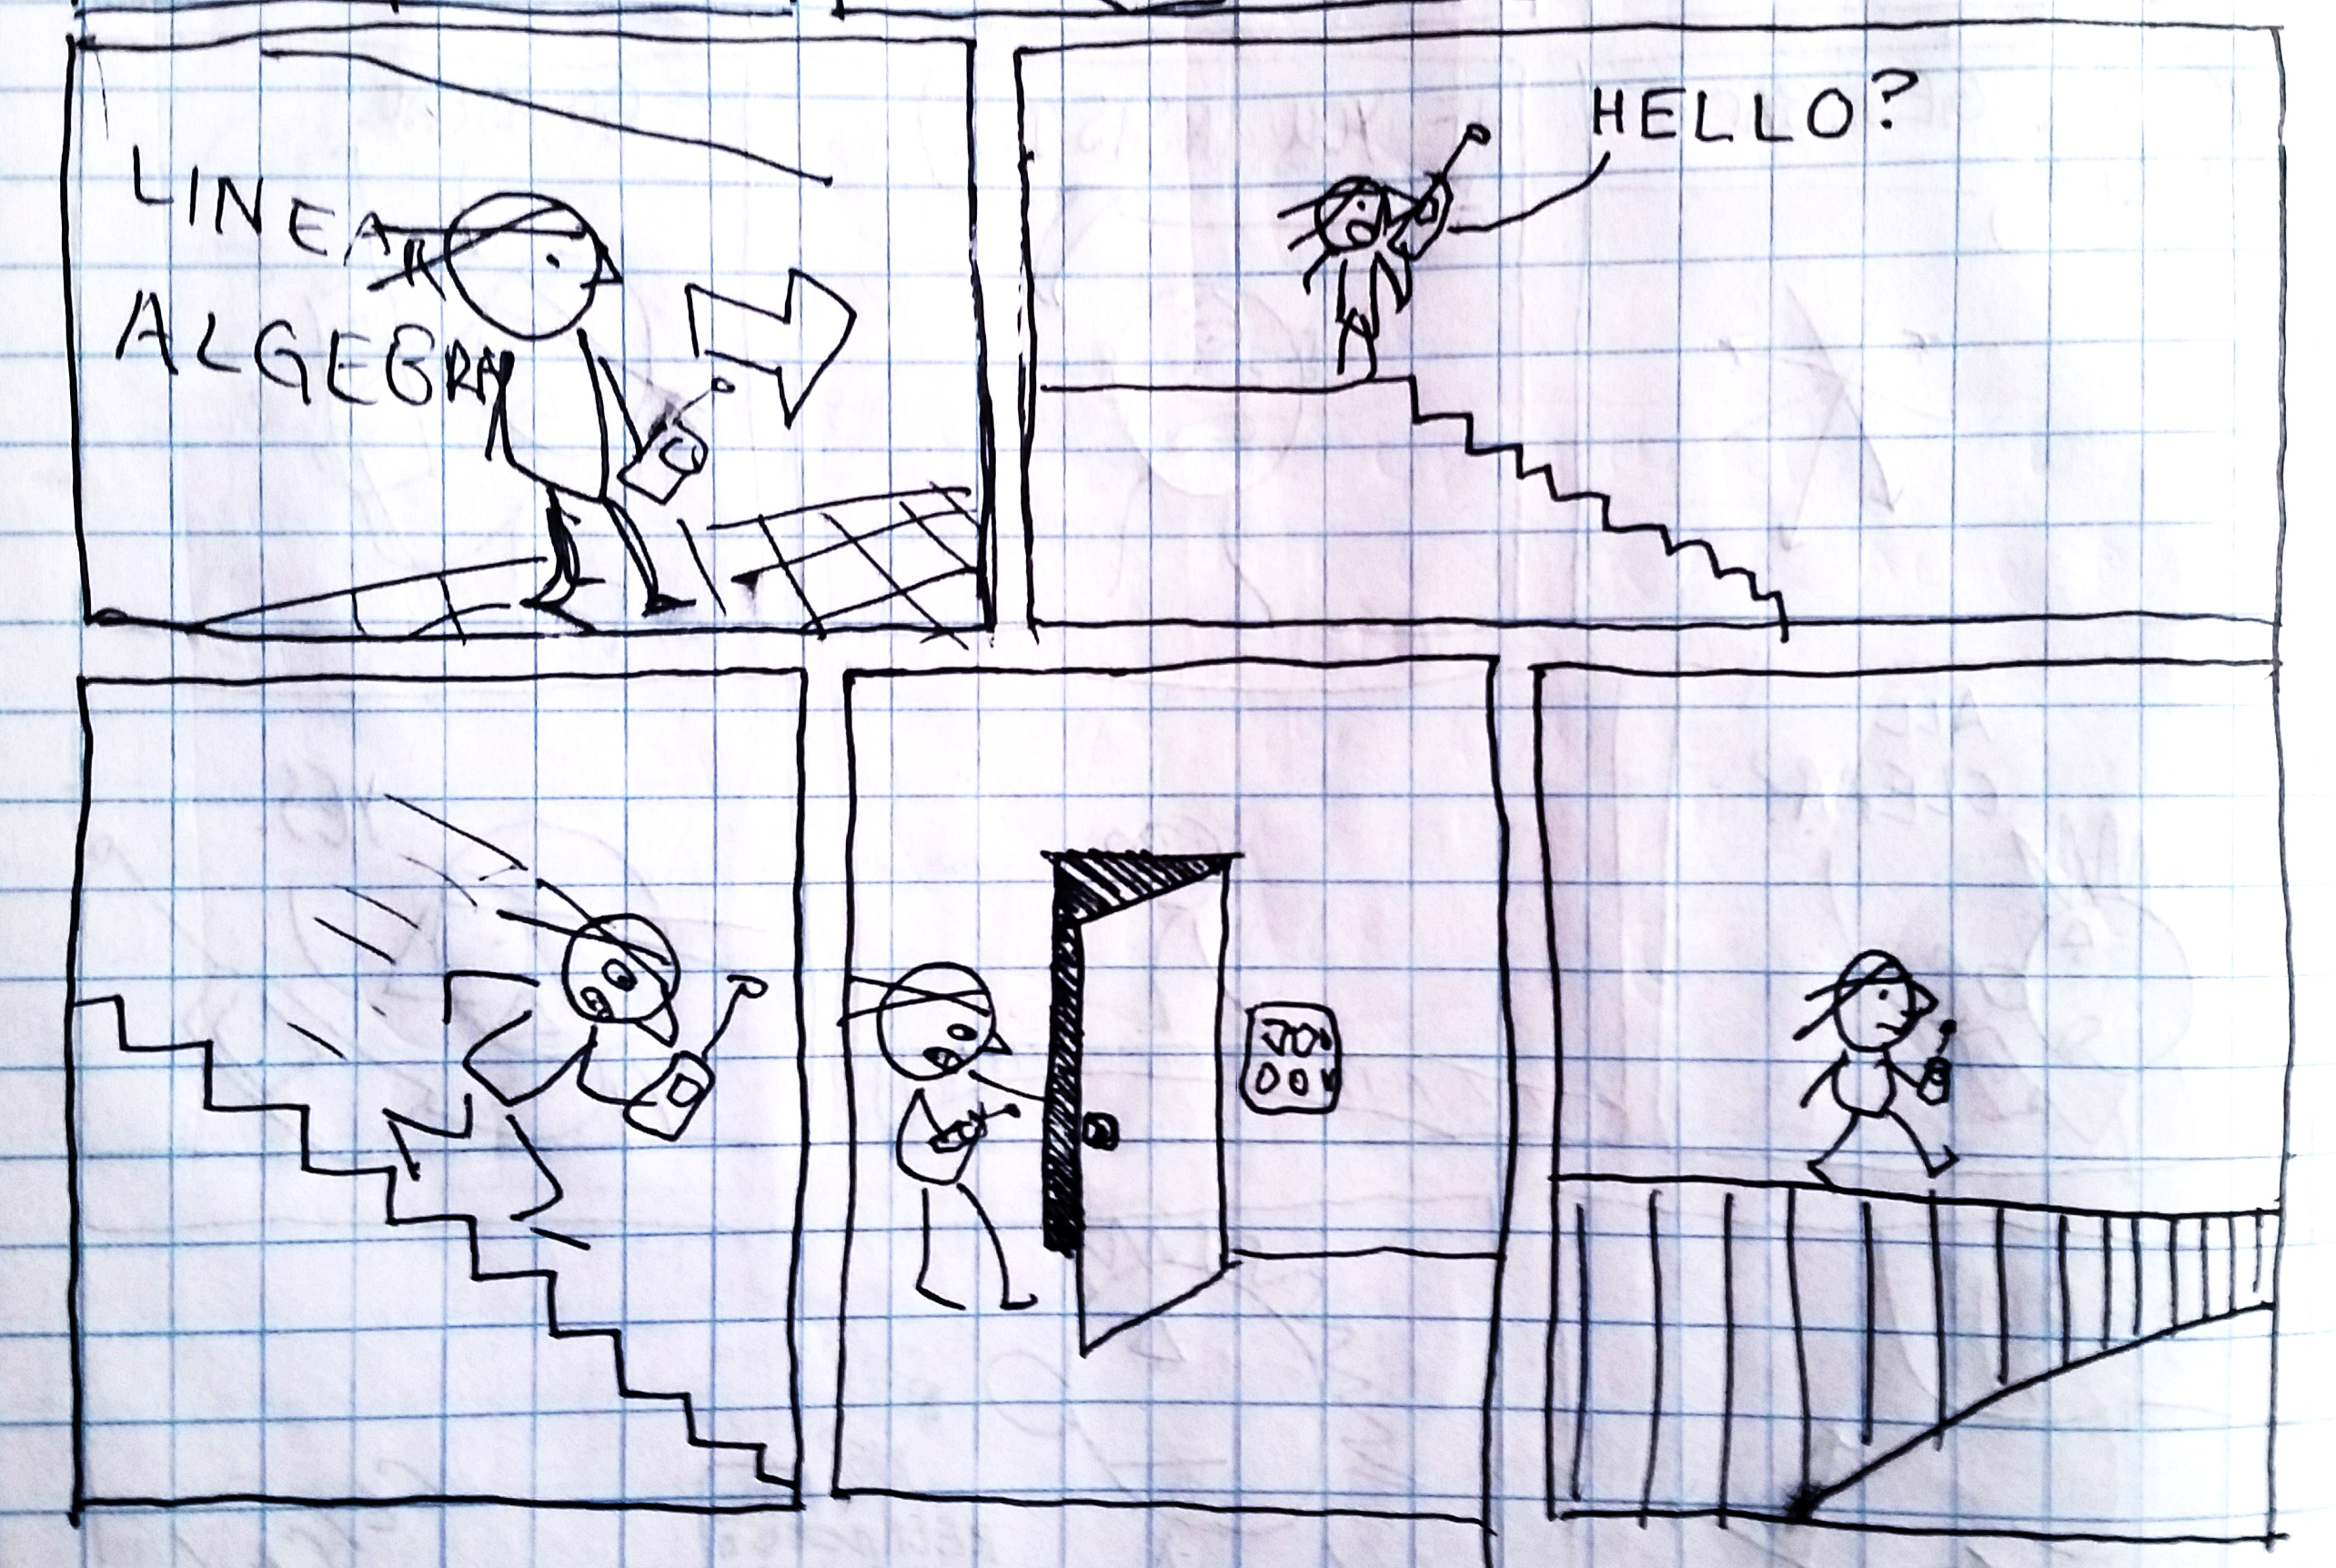 LINEAR
ALGEBRA
HELLO?